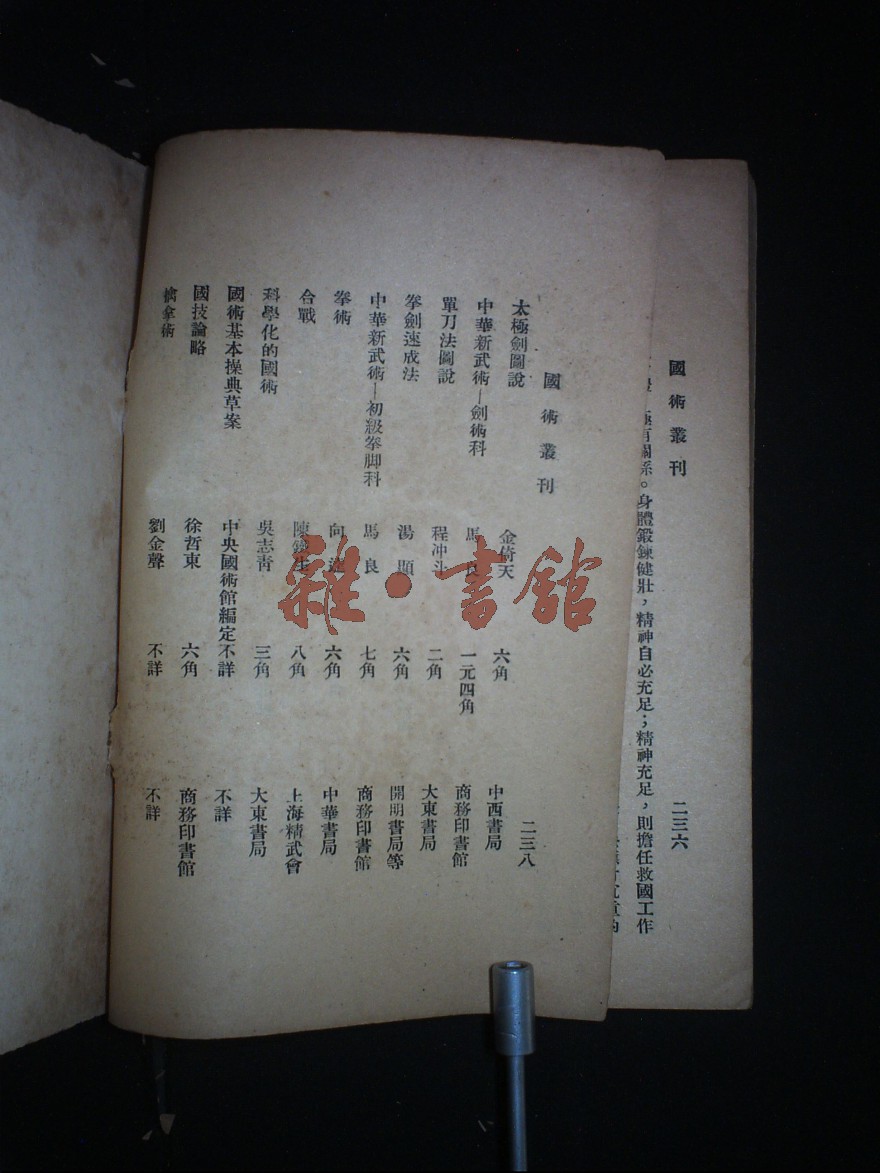 國術叢刊
二三六
極有關係。身體鍛鍊健壯，精神自必充足；精神充足，則擔任救國工作
國術叢刊
二三八
太極劍圖說 金倚天 六角 中西書局
中華新武術—劍術科 馬良 一元四角 商務印書館
單刀法圖說 程冲斗 二角 大東書局
拳劍速成法 湯顯 六角 開明書局等
中華新武術—初級拳脚科 馬良 七角 商務印書館
拳術 向逵 六角 中華書局
合戰 陳鐵生 八角 上海精武會
科學化的國術 吳志青 三角 大東書局
國術基本操典草案 中央國術館編定 不詳 不詳
國技論略 徐哲東 六角 商務印書館
擒拿術 劉金聲 不詳 不詳
雜·書館